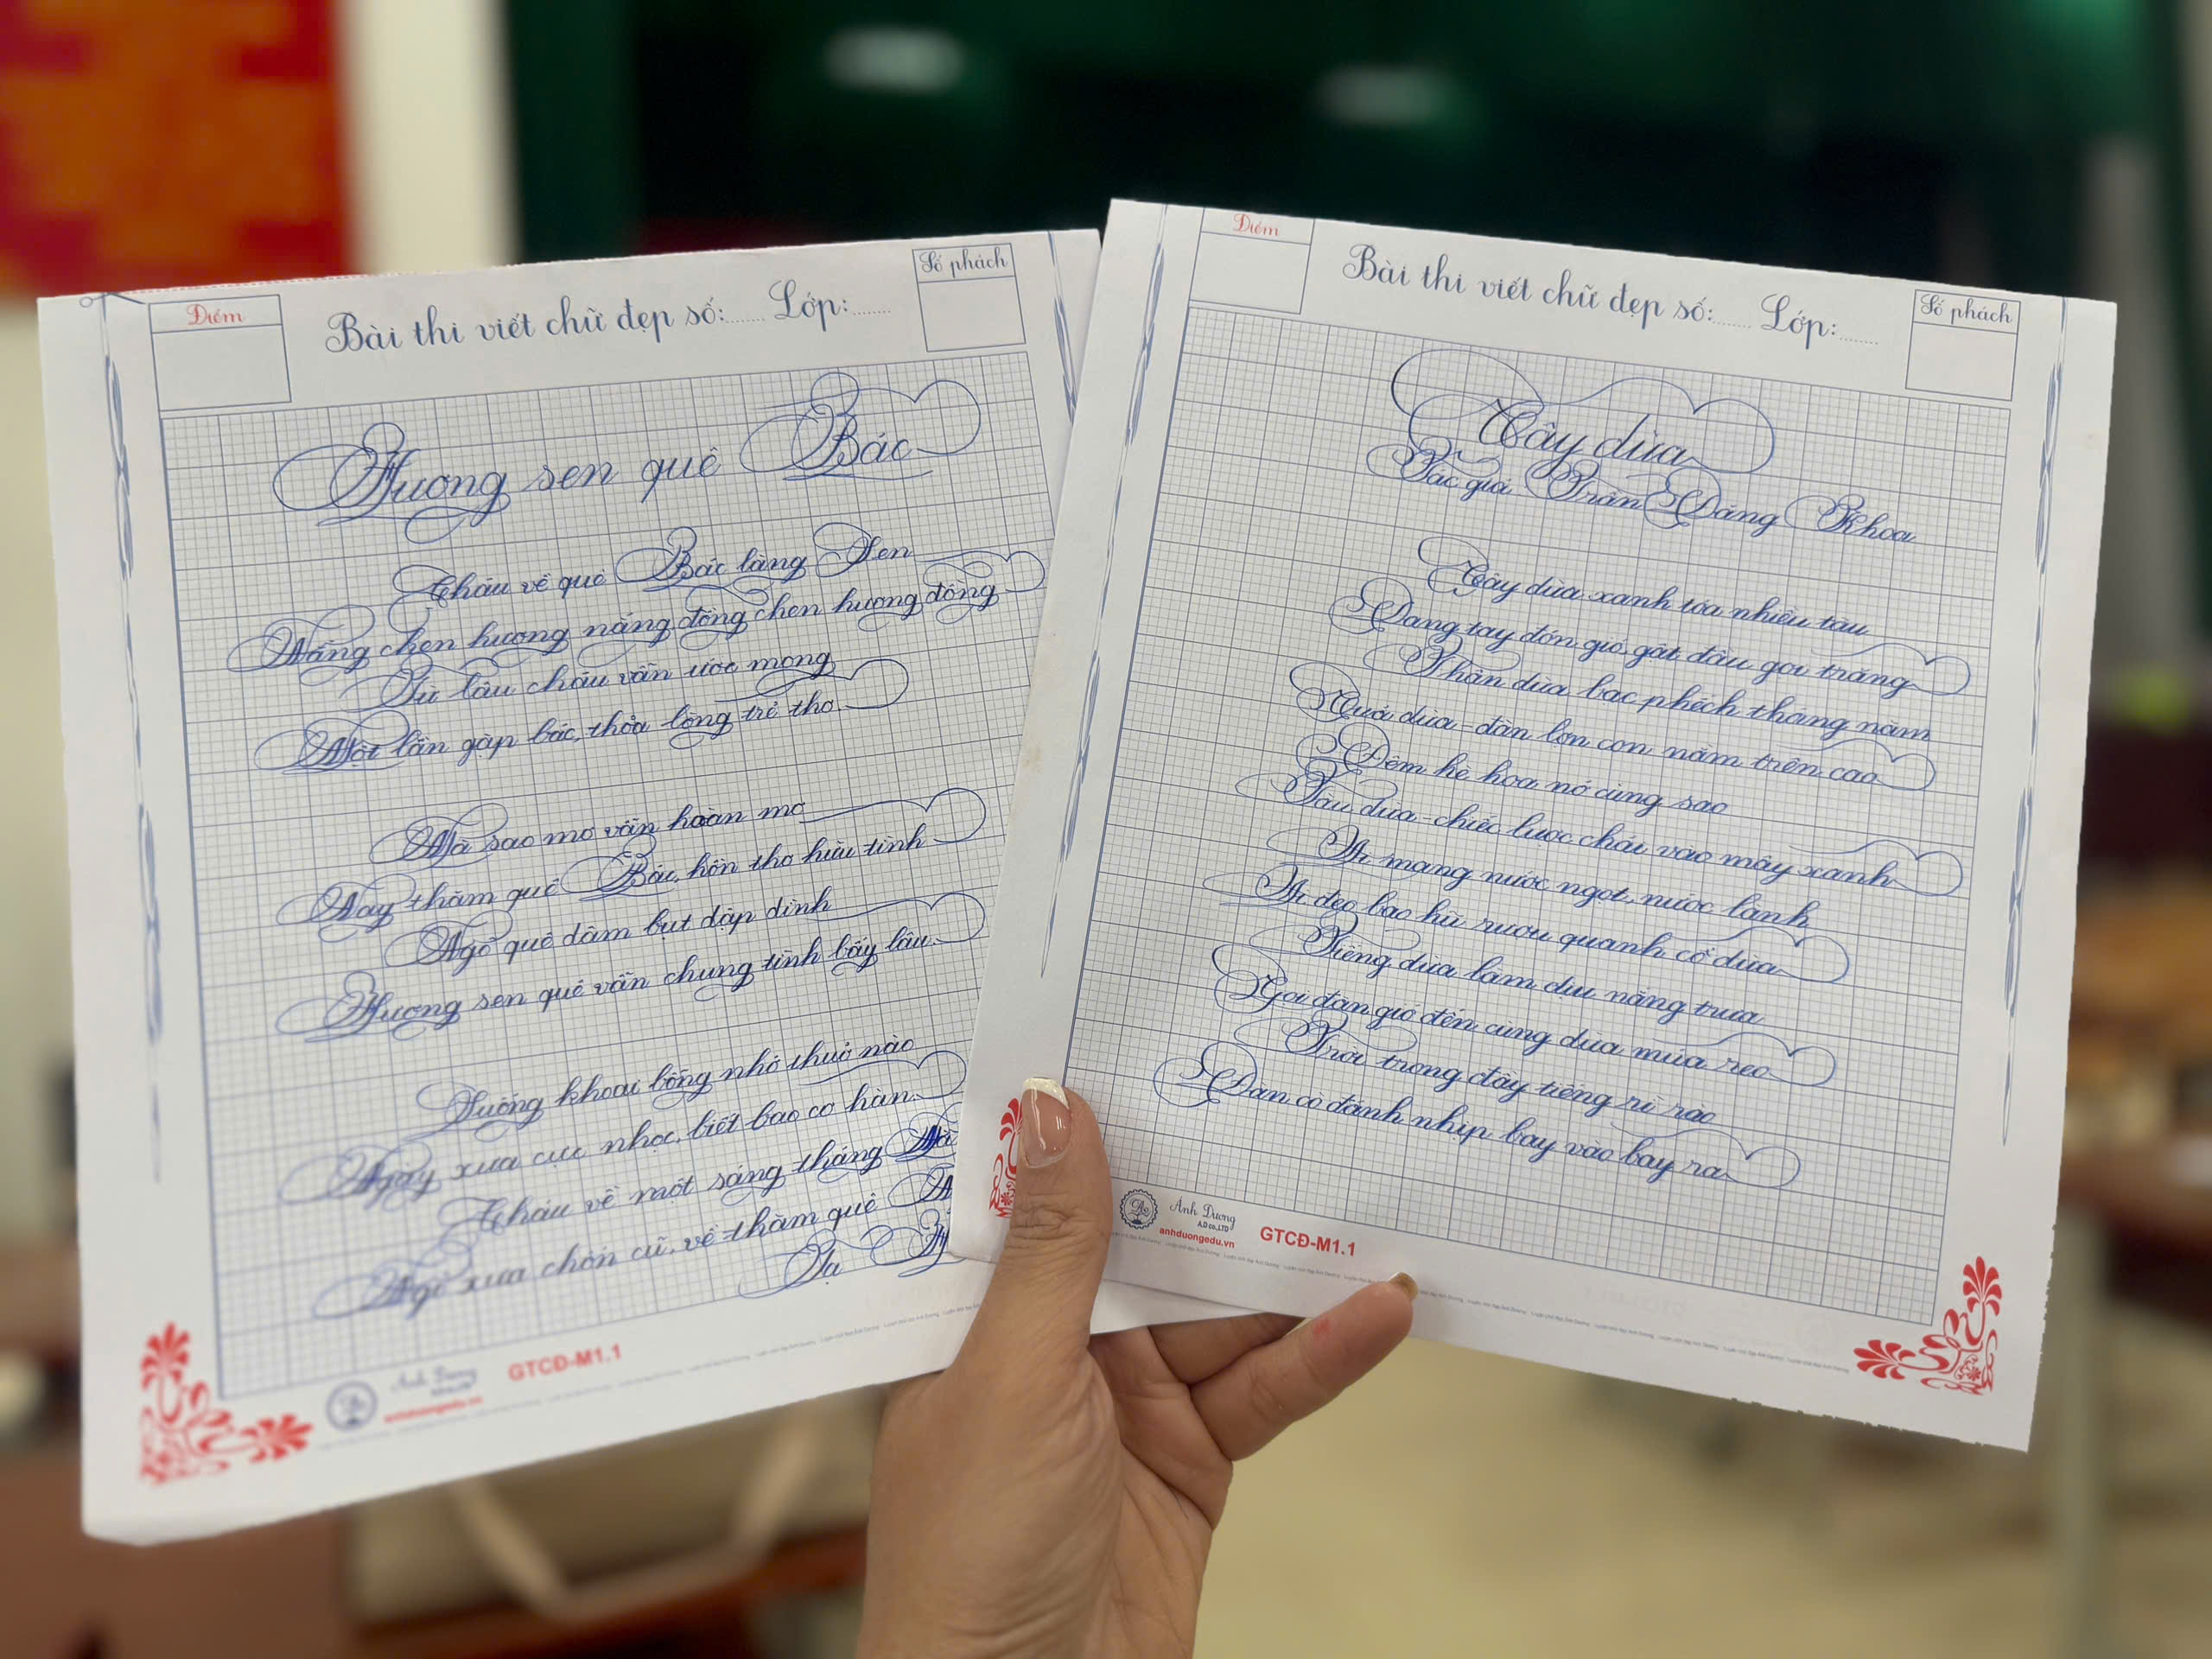 Điểm
Bài thi viết chữ đẹp số:...... Lớp:......
Số phách
Hương sen quê Bác
Cháu về quê Bác làng Sen
Nắng chen hương nắng đồng chen hương đồng
Từ lâu cháu vẫn ước mong
Một lần gặp bác, thỏa lòng trẻ thơ
Mà sao mơ vẫn hoàn mơ
Nay thăm quê Bác, hồn thơ hữu tình
Ngõ quê dâm bụt dập dình
Hương sen quê vẫn chung tình bấy lâu.
Luống khoai bỗng nhớ thuở nào
Ngày xưa cực nhọc, biết bao cơ hàn.
Cháu về một sáng tháng
Ngõ xưa chốn cũ, về thăm quê
Tạ
Ánh Dương
anhduongedu.vn
GTCĐ-M1.1
Điểm
Bài thi viết chữ đẹp số:...... Lớp:......
Số phách
Cây dừa
Tác giả Trần Đăng Khoa
Cây dừa xanh tỏa nhiều tàu
Dang tay đón gió, gật đầu gọi trăng
Thân dừa bạc phếch tháng năm
Quả dừa - đàn lợn con nằm trên cao
Đêm hè hoa nở cùng sao
Tàu dừa - chiếc lược chải vào mây xanh
Ai mang nước ngọt, nước lành
Ai đeo bao hũ rượu quanh cổ dừa
Tiếng dừa làm dịu nắng trưa
Gọi đàn gió đến cùng dừa múa reo
Trời trong đầy tiếng rì rào
Đàn cò đánh nhịp bay vào bay ra
Ánh Dương
A.D CO.,LTD
anhduongedu.vn
GTCĐ-M1.1